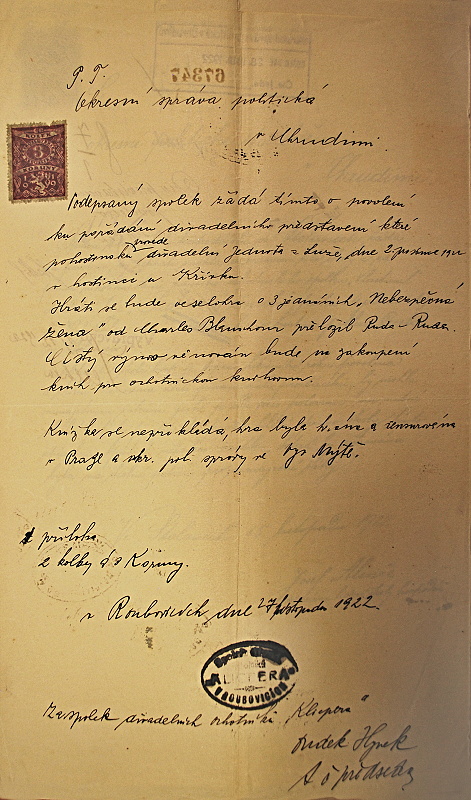 67347
P. T.
Okresní správa politická
v Chrudimi.
3
Podepsaný spolek žádá tímto o povolení
ku pořádání divadelního představení které
pohostinsku divadelní Jednota z Luže, dne 2. prosince 1922
v hostinci u Křivka.
Hráti se bude veselohra o 3 jednáních „Nebezpečná
žena" od Charles přeložil Ruda - Ruda.
Čistý výnos věnován bude na zakoupení
knih pro ochotnickou knihovnu.
Knížka se nepřikládá, hra byla a censurována
v Praze a okr. pol. správy ve Vys Mýtě.
1 příloha
2 kolky á 3 Koruny.
v dne 27 listopadu 1922.
KLICPERA
V ROUBOVICÍCH
Za spolek divadelních ochotníků „Klicpera"
Hynek
předseda